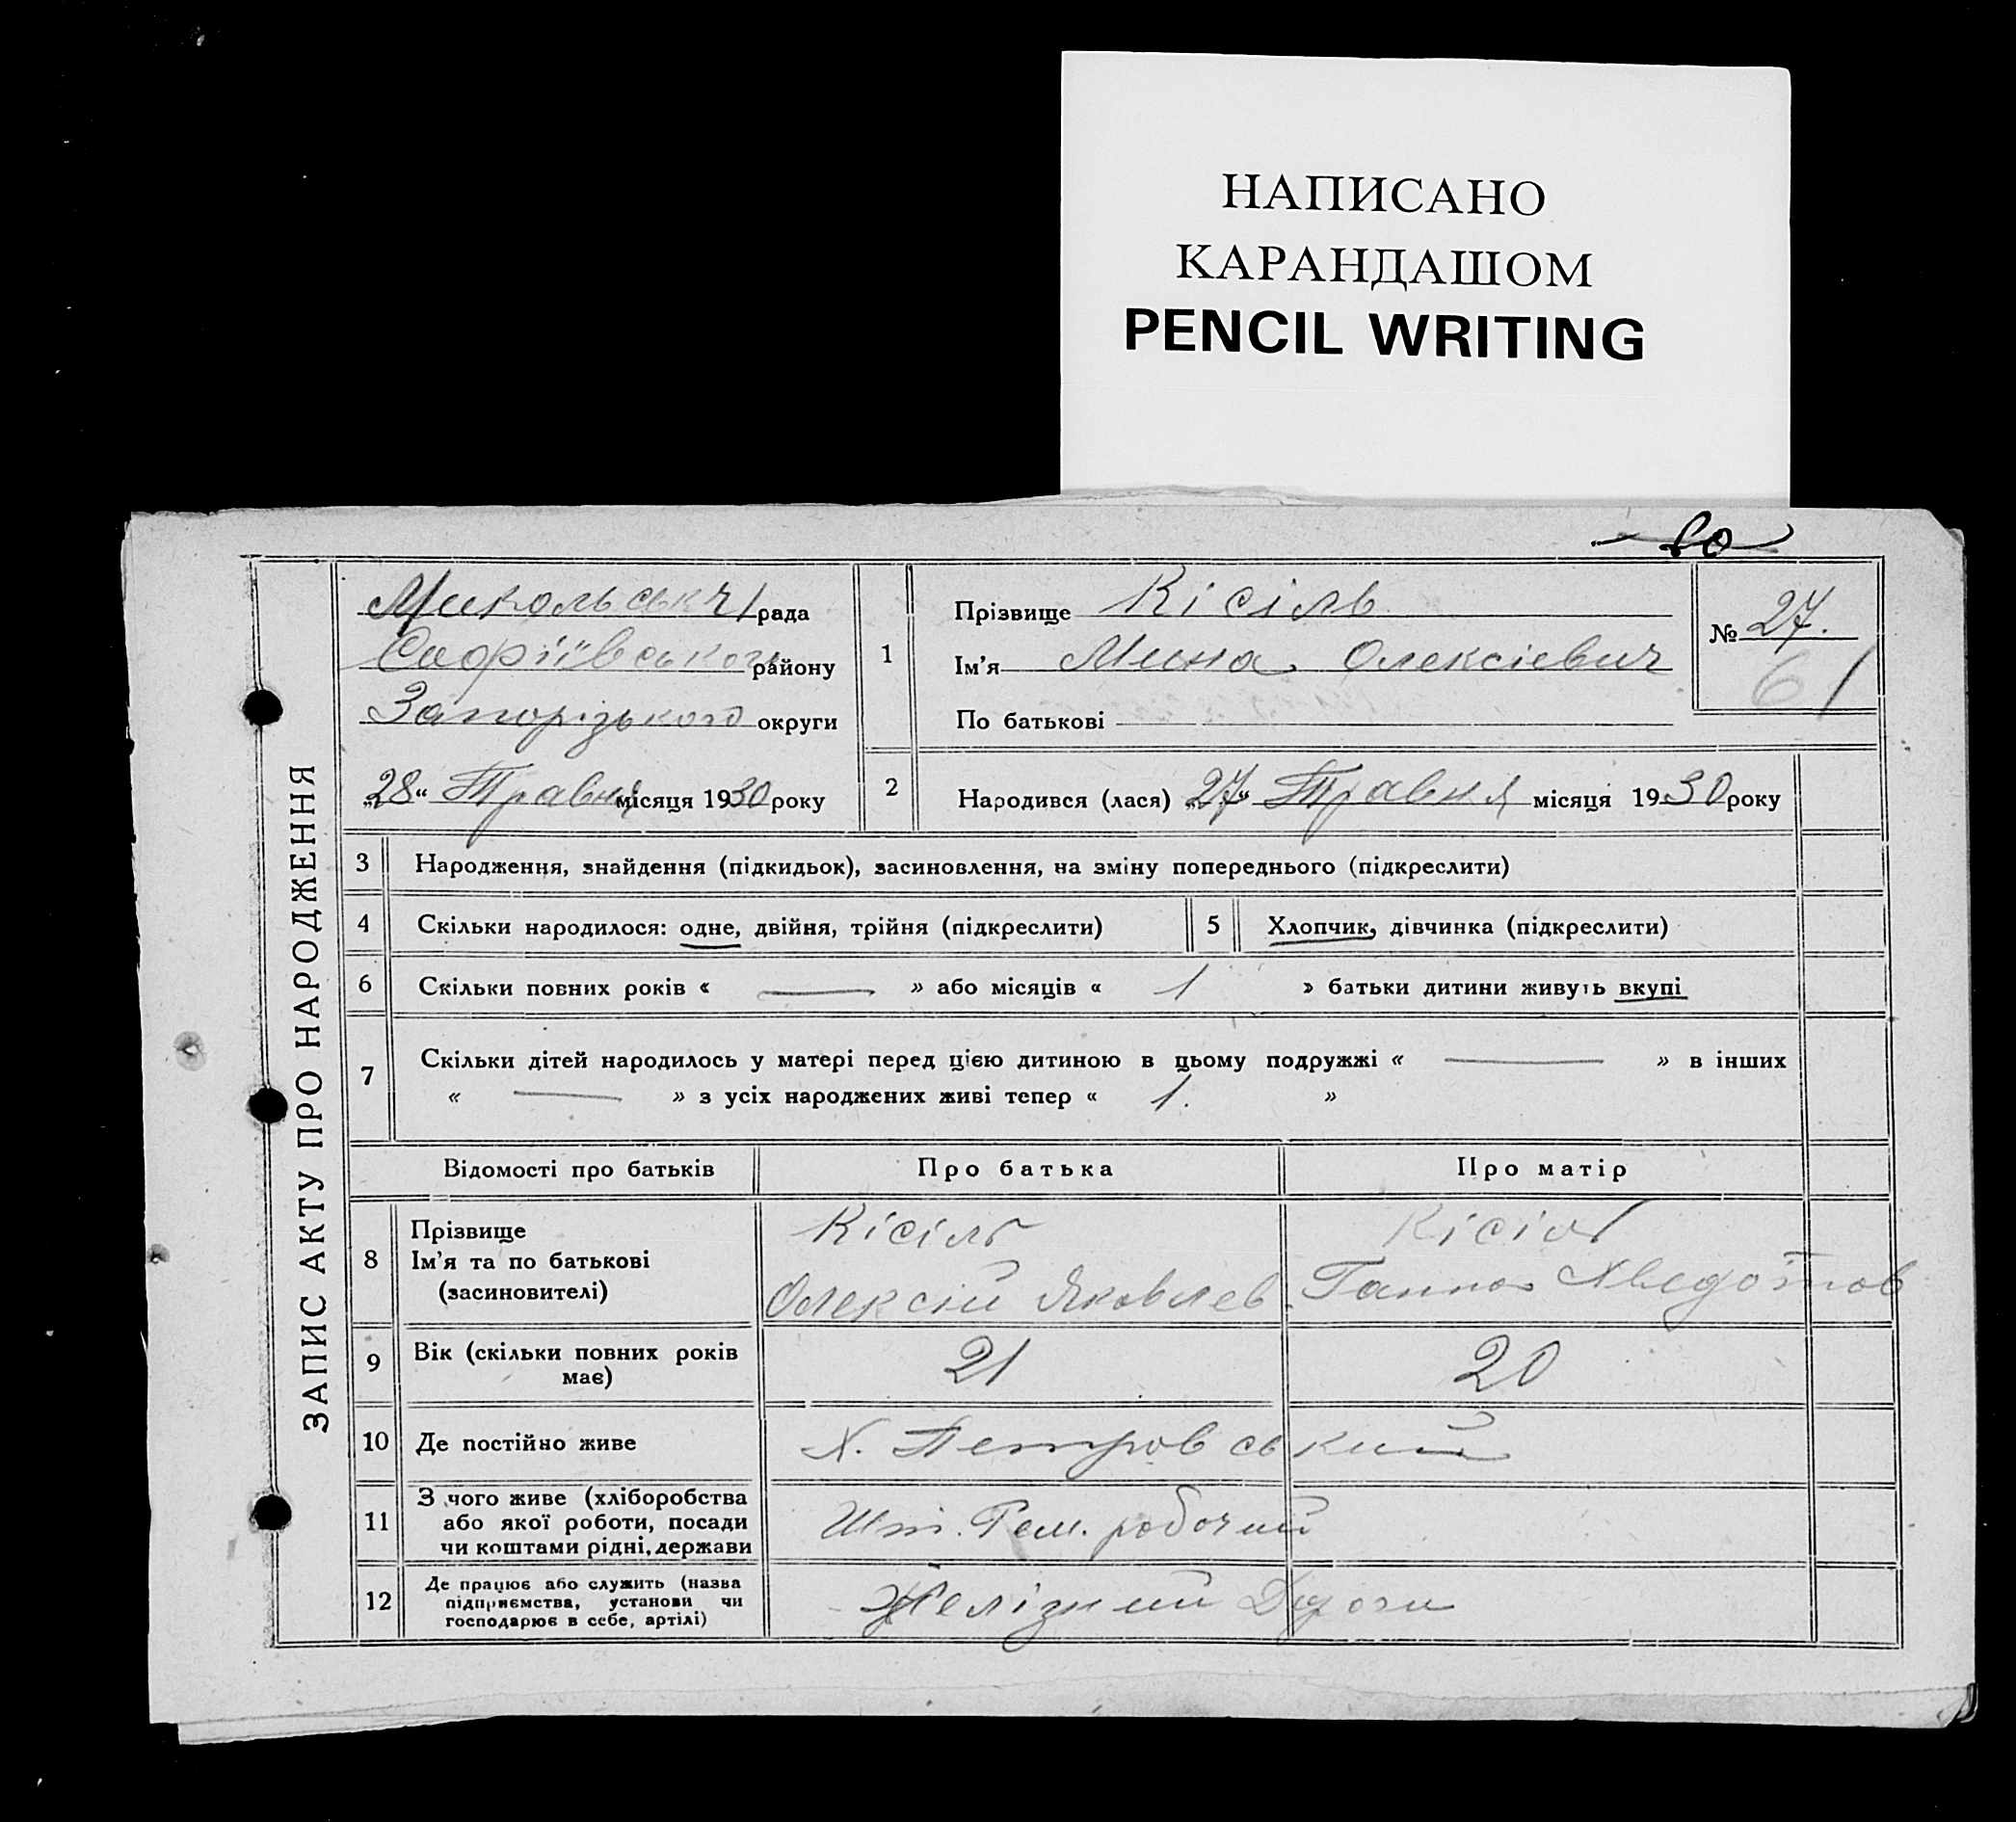 НАПИСАНО
КАРАНДАШОМ
PENCIL WRITING
80
ЗАПИС АКТУ ПРО НАРОДЖЕННЯ
рада
Софіївського району
Запорізького округи
„28“ Травня місяця 1930 року
1
Прізвище Кісіль
Ім'я Мина Олексієвич
По батькові
№ 27.
61
2
Народився (лася) „27“ Травня місяця 1930 року
3 Народження, знайдення (підкидьок), засиновлення, на зміну попереднього (підкреслити)
4 Скільки народилося: одне, двійня, трійня (підкреслити) 5 Хлопчик, дівчинка (підкреслити)
6 Скільки повних років « — » або місяців « 1 » батьки дитини живуть вкупі
7 Скільки дітей народилось у матері перед цією дитиною в цьому подружжі « — » в інших
« — » з усіх народжених живі тепер « 1. »
Відомості про батьків Про батька Про матір
8 Прізвище
Ім'я та по батькові
(засиновителі)
Кісіль
Олексій Яковлев.
Кісіль
Ганна Хведотов
9 Вік (скільки повних років
має)
21 20
10 Де постійно живе Х. Петровський
11 З чого живе (хліборобства
або якої роботи, посади
чи коштами рідні, держави
Шт. Рем. робочий
12 Де працює або служить (назва
підприємства, установи чи
господарює в себе, артілі)
Желізний Дороги